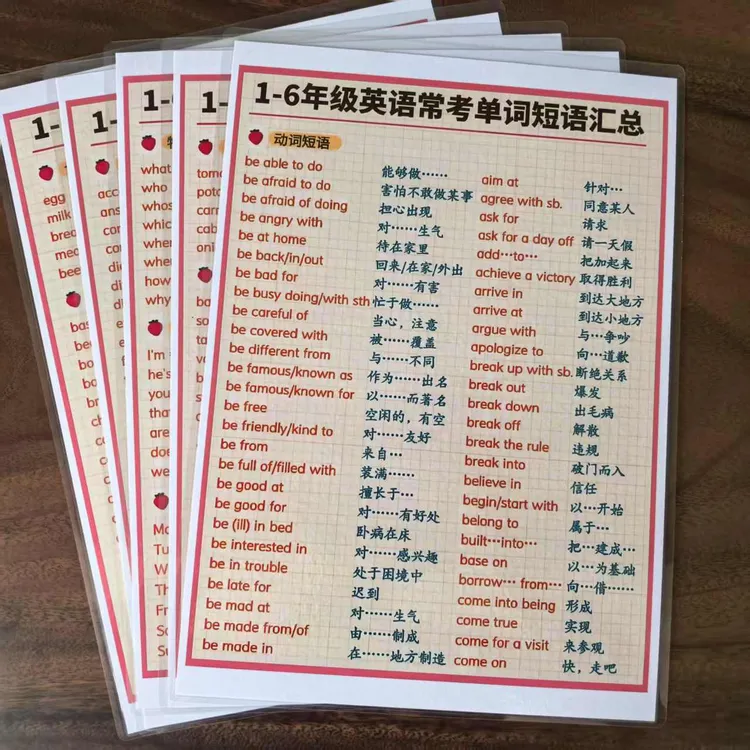 1-6年级英语常考单词短语汇总
动词短语
be able to do 能够做……
be afraid to do 害怕不敢做某事
be afraid of doing 担心出现
be angry with 对……生气
be at home 待在家里
be back/in/out 回来/在家/外出
be bad for 对……有害
be busy doing/with sth 忙于做……
be careful of 当心，注意
be covered with 被……覆盖
be different from 与……不同
be famous/known as 作为……出名
be famous/known for 以……而著名
be free 空闲的，有空
be friendly/kind to 对……友好
be from 来自…
be full of/filled with 装满……
be good at 擅长于…
be good for 对……有好处
be (ill) in bed 卧病在床
be interested in 对……感兴趣
be in trouble 处于困境中
be late for 迟到
be mad at 对……生气
be made from/of 由……制成
be made in 在……地方制造
aim at 针对…
agree with sb. 同意某人
ask for 请求
ask for a day off 请一天假
add…to… 把加起来
achieve a victory 取得胜利
arrive in 到达大地方
arrive at 到达小地方
argue with 与…争吵
apologize to 向…道歉
break up with sb. 断绝关系
break out 爆发
break down 出毛病
break off 解散
break the rule 违规
break into 破门而入
believe in 信任
begin/start with 以…开始
belong to 属于…
built…into… 把…建成…
base on 以…为基础
borrow… from… 向…借……
come into being 形成
come true 实现
come for a visit 来参观
come on 快，走吧
1-
1-
1-
1-
egg
milk
what
who
whose
which
when
where
how
why
I'm
he's